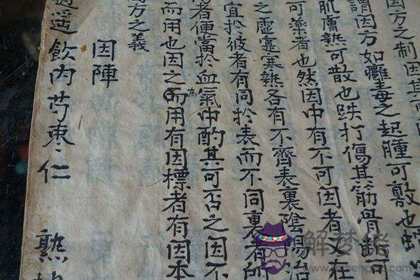 方之制因其
謂因方如癰毒之起腫可敷也
肌膚熱可散也跌打傷其筋骨
可藥者也然因中有不可因者又在
之虛實寒熱各有不齊表裏陰陽
宜於彼者有同於表而不同裏有所
者便當於血氣中酌其可否之因不
而用也因之而用有因標者有因本
方之義
因陣
飲内芎棗仁 熟